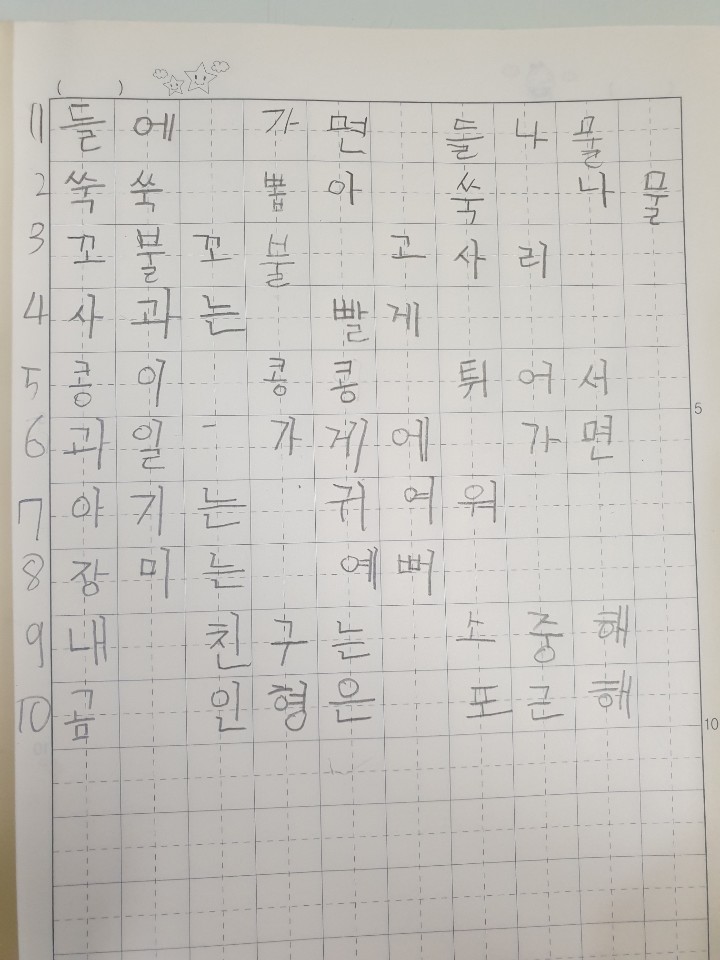 ( )
1 들에 가면 돌나물
2 쑥쑥 뽑아 쑥 나물
3 꼬불꼬불 고사리
4 사과는 빨게
5 콩이 콩콩 튀어서
5
6 과일 가게에 가면
7 아기는 귀여워
8 장미는 예뻐
9 내 친구는 소중해
10 곰 인형은 포근해
10